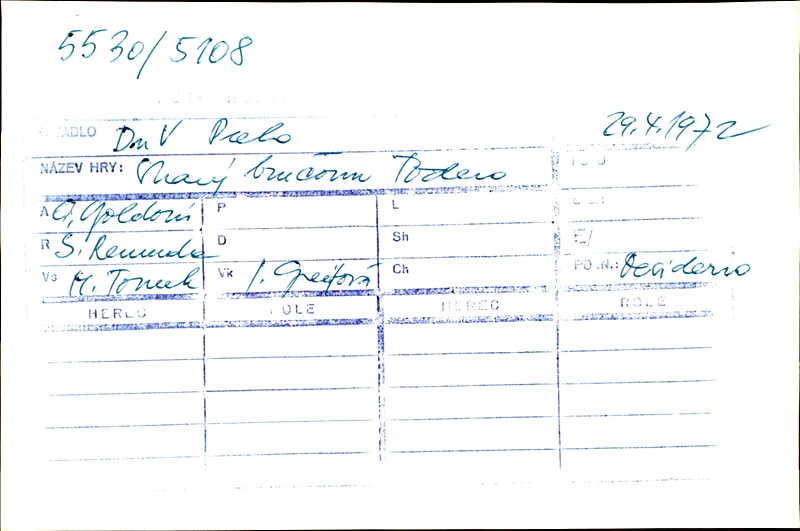 5530/5108
DIVADLO DnV Praha 29.4.1972
NÁZEV HRY: Starý bručoun Todero
A C. Goldoni P L
R S. Remunda D Sh
Vs M. Tomek Vk I. Greifová Ch POZN.: Desiderio
HEREC ROLE HEREC ROLE